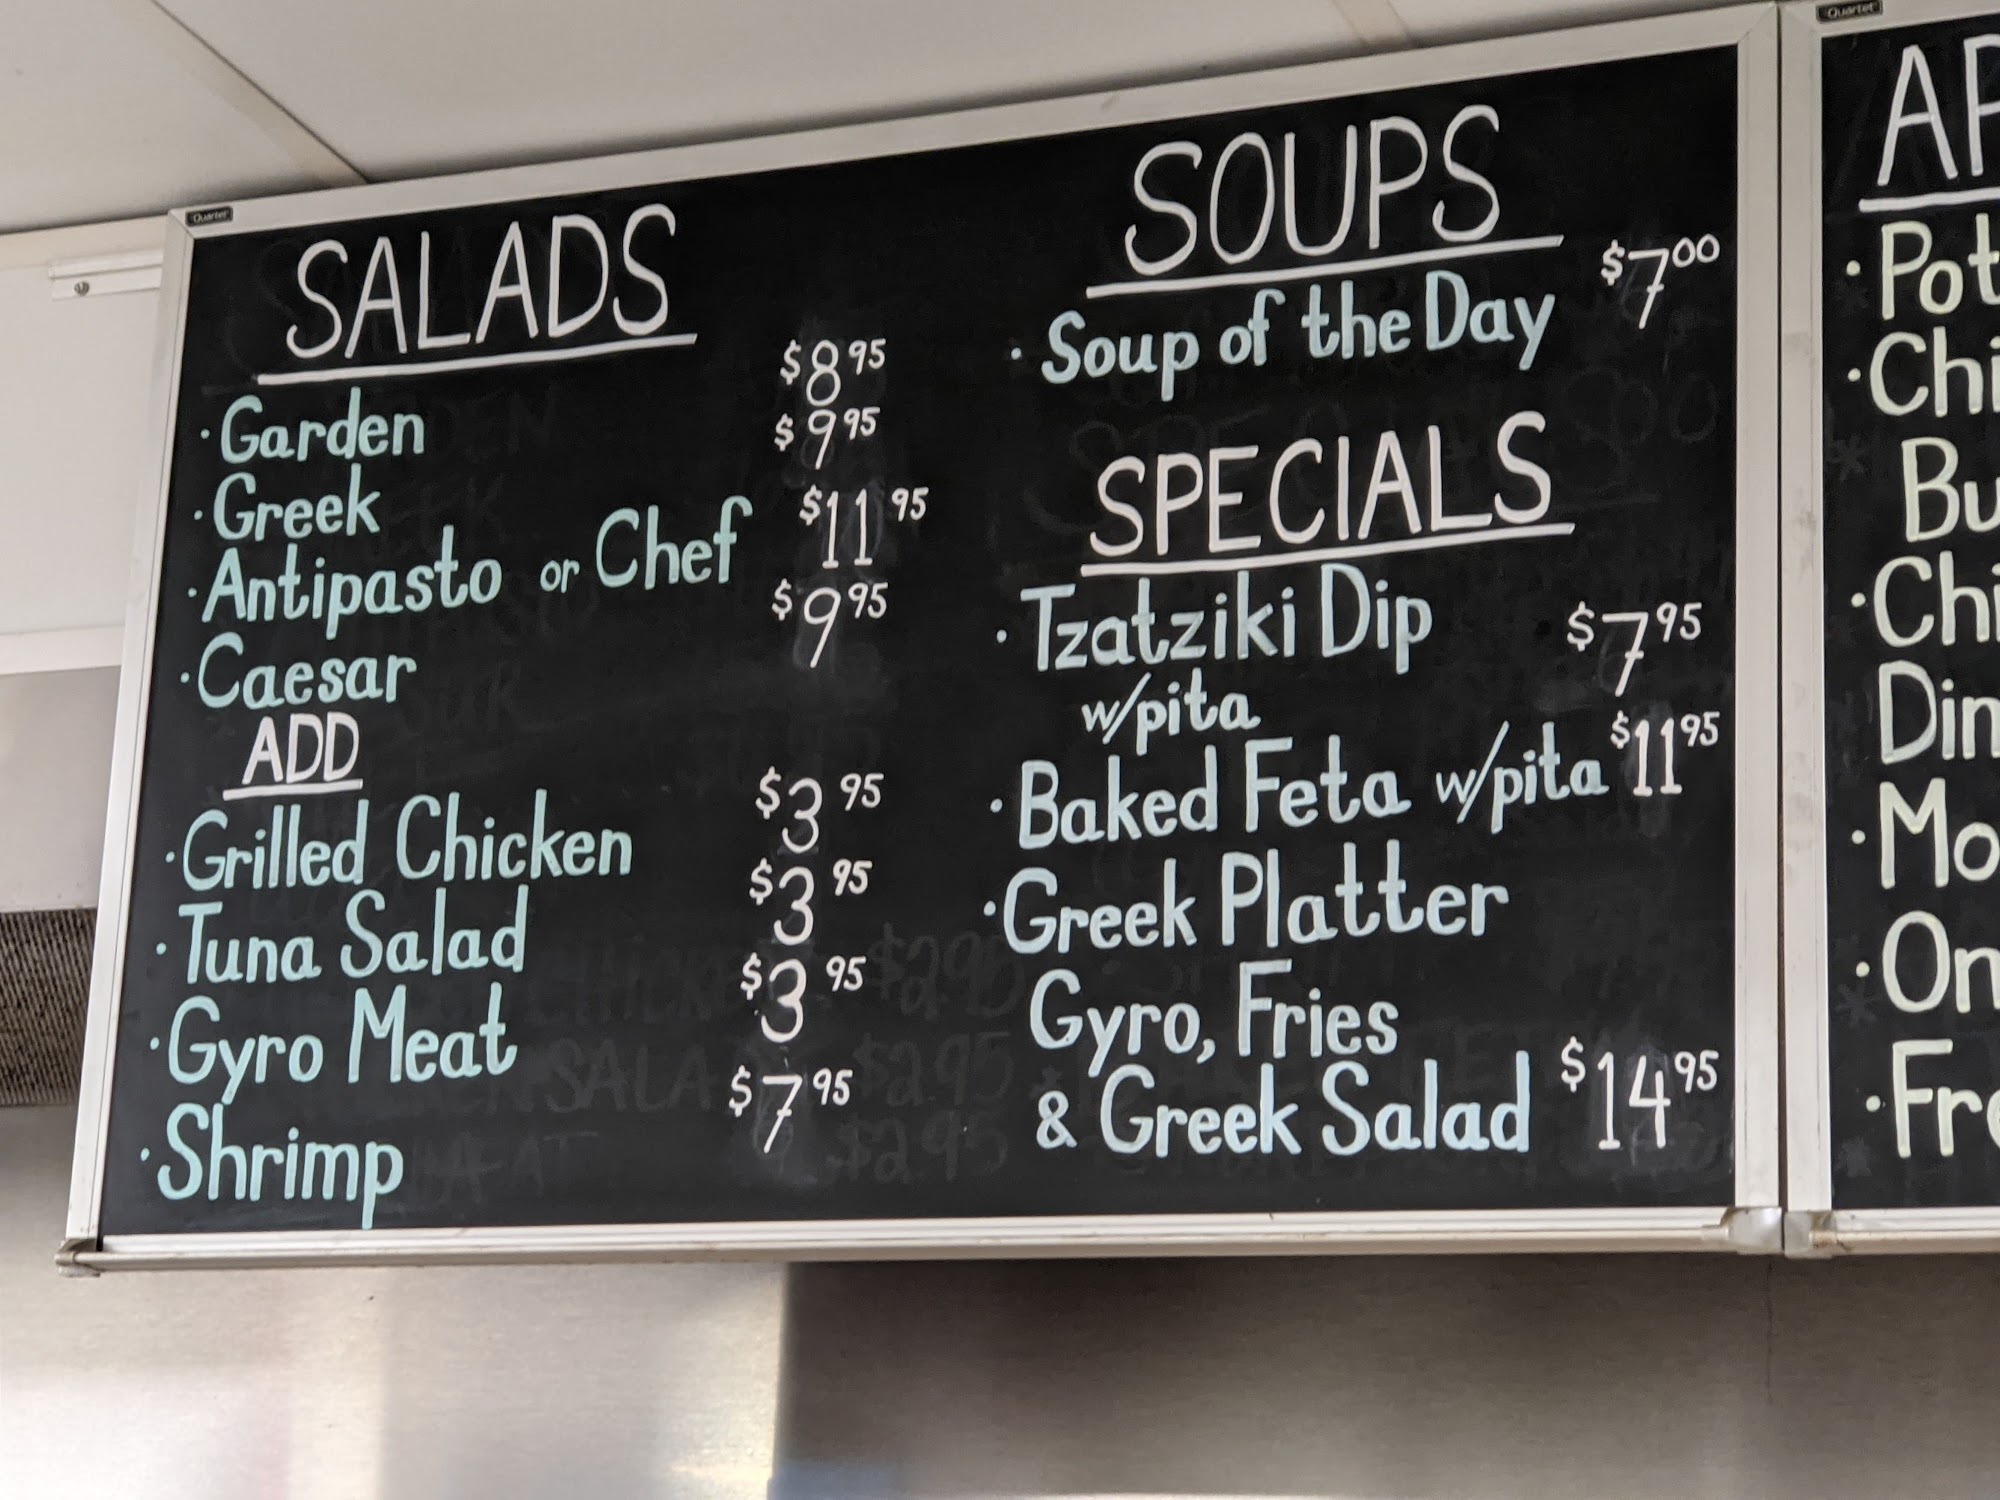 Quartet
SALADS
· Garden $8.95
· Greek $9.95
· Antipasto or Chef $11.95
· Caesar $9.95
ADD
· Grilled Chicken $3.95
· Tuna Salad $3.95
· Gyro Meat $3.95
· Shrimp $7.95
SOUPS
· Soup of the Day $7.00
SPECIALS
· Tzatziki Dip $7.95
w/pita
· Baked Feta w/pita $11.95
· Greek Platter
Gyro, Fries
& Greek Salad $14.95
Quartet